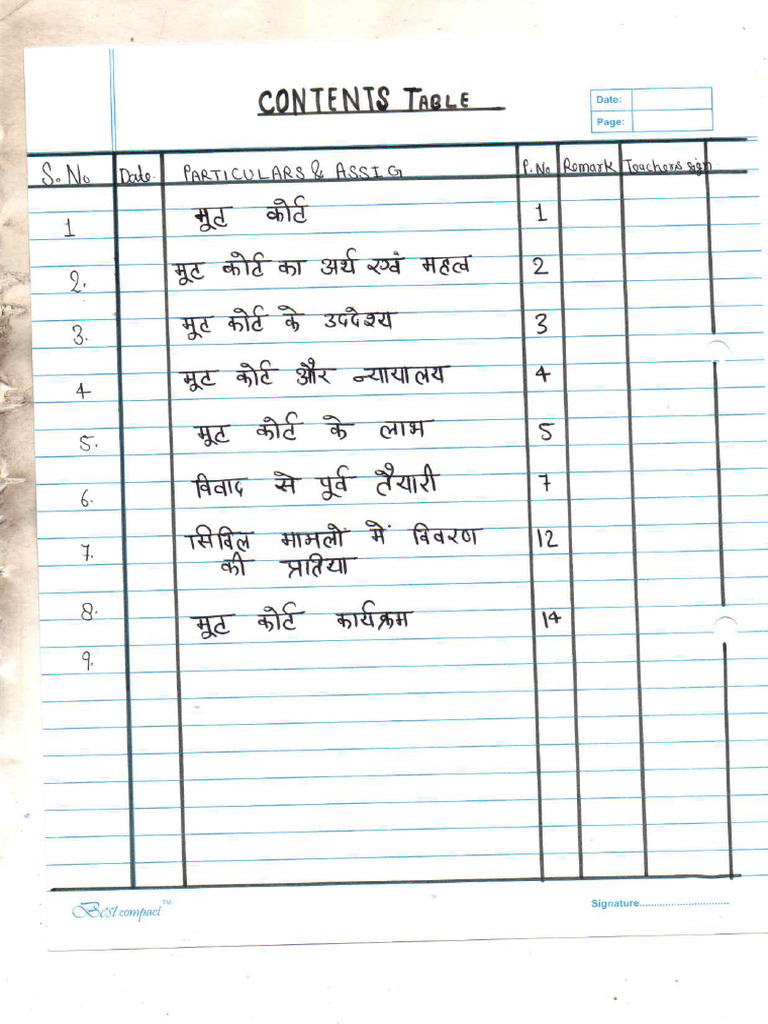 CONTENTS TABLE
Date:
Page:
S.No Date PARTICULARS & ASSIG P.No Remark Teachers sign
1 मूट कोर्ट 1
2. मूट कोर्ट का अर्थ एवं महत्व 2
3. मूट कोर्ट के उददेश्य 3
4 मूट कोर्ट और न्यायालय 4
5. मूट कोर्ट के लाभ 5
6. विवाद से पूर्व तैयारी 7
7. सिविल मामलों में विवरण 12
की प्रतिया
8. मूट कोर्ट कार्यक्रम 14
9.
Best compact™
Signature..............................